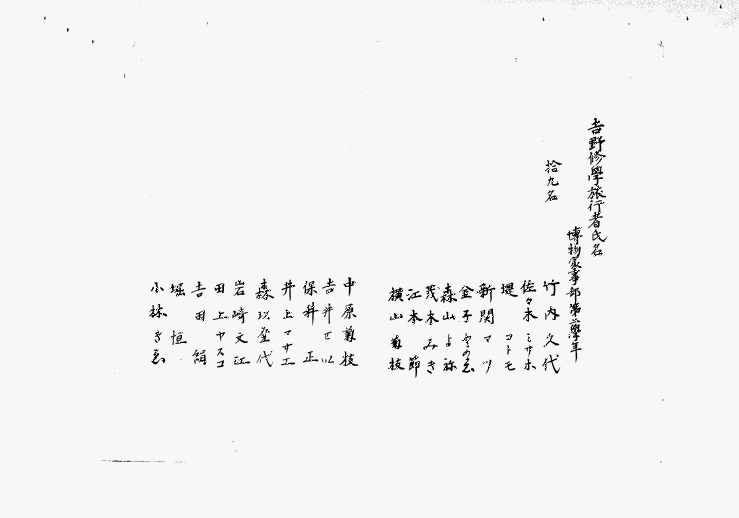 吉野修學旅行者氏名
博物家事部第 學年
拾九名
竹内久代
佐々木ミサホ
堤コトモ
新関マツ
金子やの恵
森山よね
茂木みき
江本節
横山菊枝
中原菊枝
吉井せい
保科正
井上マサエ
森 登代
岩崎文江
田上ヤスコ
吉田絹
堀恒
小林きゑ